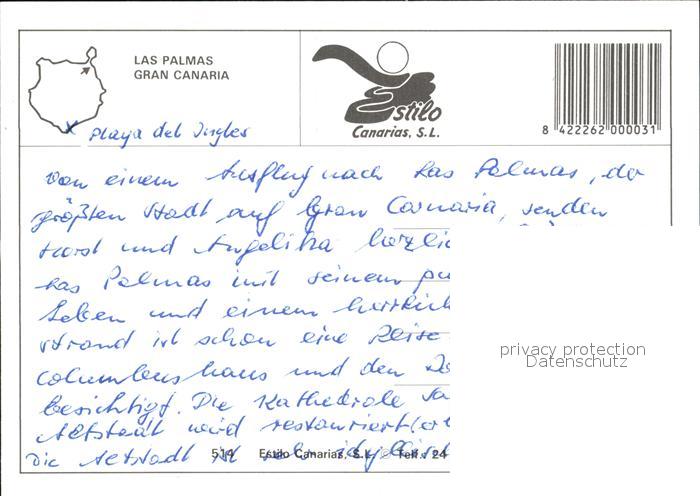 LAS PALMAS
GRAN CANARIA
Estilo
Canarias, S.L.
8 422262 000031
x Playa del Ingles
Von einem Ausflug nach Las Palmas, der
größten Stadt auf Gran Canaria, senden
Horst und Angelika herzlic
Las Palmas mit seinem pu
Leben und einem herrlich
strand ist schon eine Reise
Columbushaus und den
besichtigt. Die Kathedrale
Altstadt wird restauriert
Die Altstadt ist sehr idyllisch
514 Estilo Canarias, S.L. Telf.: 24
privacy protection
Datenschutz